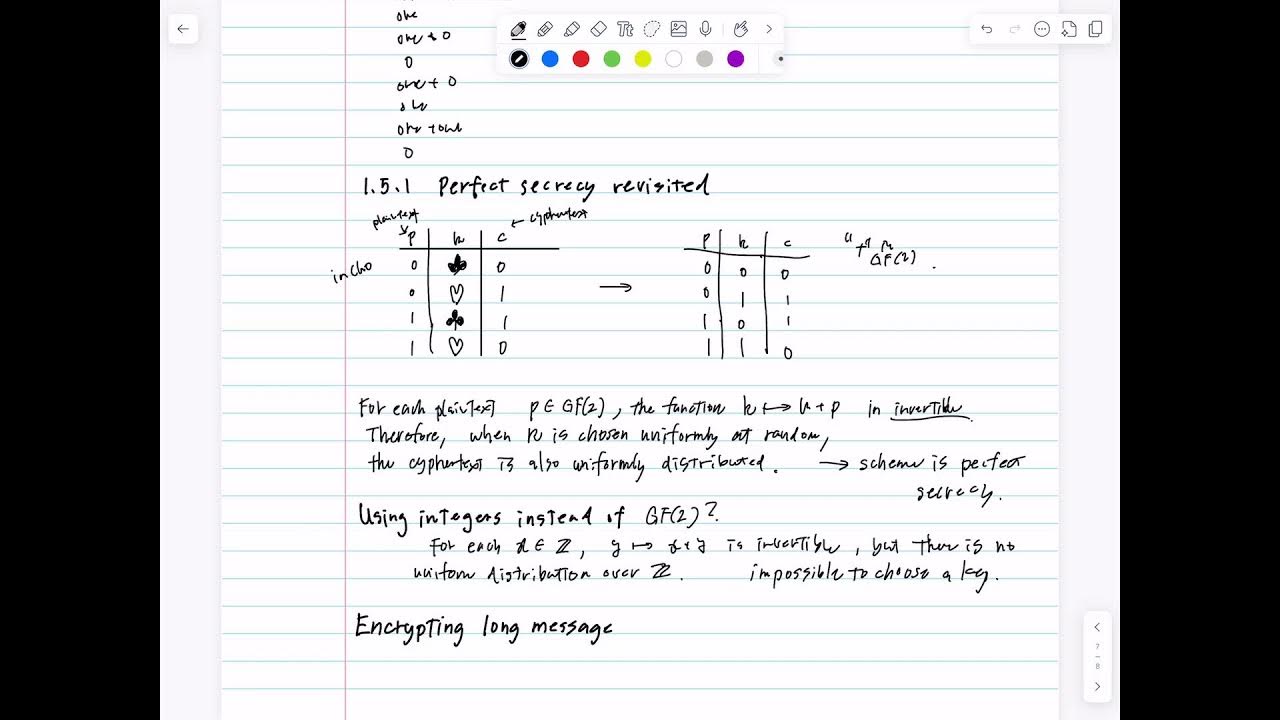 one
one + 0
0
one + 0
one
one + one
0
1.5.1 Perfect secrecy revisited
plaintext ← cyphertext
P k c
0 ♣ 0
0 ♡ 1
1 ♣ 1
1 ♡ 0
→
P k c
0 0 0
0 1 1
1 0 1
1 1 0
"+" GF(2).
For each plaintext p ∈ GF(2), the function k ↦ k + p in invertible.
Therefore, when k is chosen uniformly at random,
the cyphertext is also uniformly distributed. → scheme is perfect
secrecy.
Using integers instead of GF(2)?
For each x ∈ ℤ, y ↦ x + y is invertible, but there is no
uniform distribution over ℤ. impossible to choose a key.
Encrypting long message
Tt
7
–
8